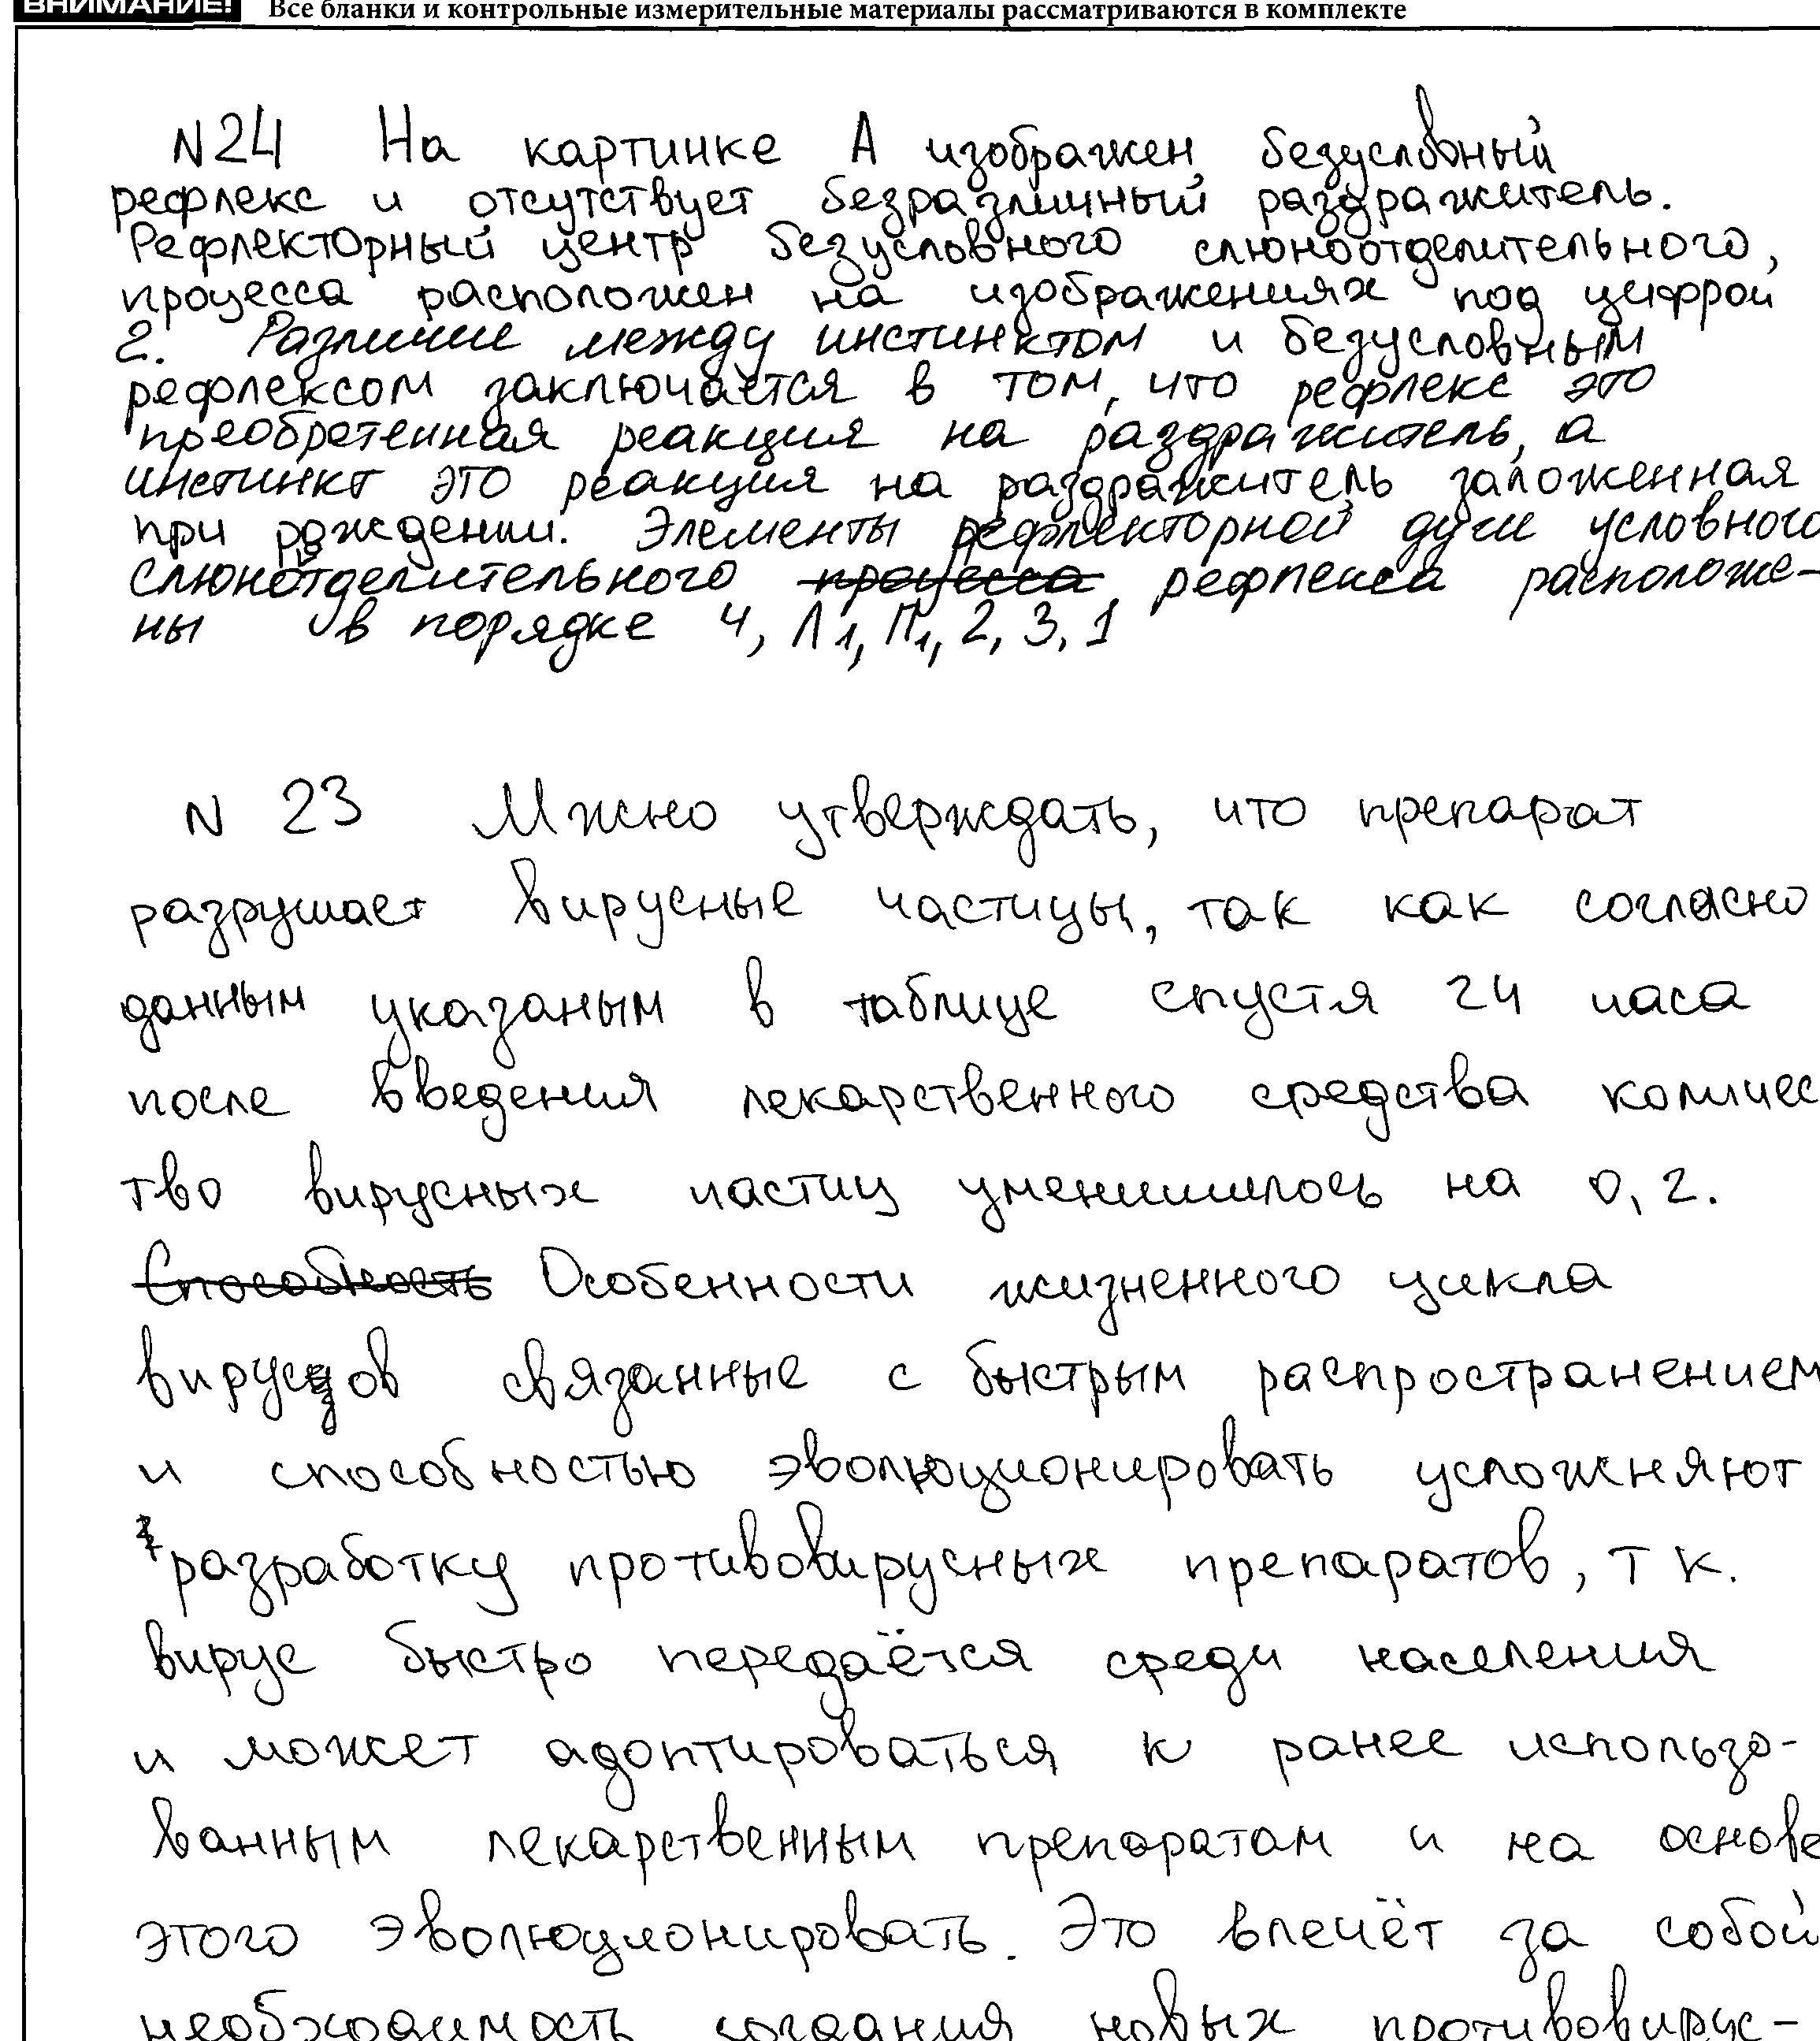 ВНИМАНИЕ! Все бланки и контрольные измерительные материалы рассматриваются в комплекте
N24 На картинке А изображен безусловный
рефлекс и отсутствует безразличный раздражитель.
Рефлекторный центр безусловного слюноотделительного,
процесса расположен на изображениях под цифрой
2. Различие между инстинктом и безусловным
рефлексом заключается в том, что рефлекс это
преобретенная реакция на раздражитель, а
инстинкт это реакция на раздражитель заложенная
при рождении. Элементы рефлекторной дуги условного
слюноотделительного процесса рефлекса расположе-
ны в порядке 4, Л1, П1, 2, 3, 1
N 23 Мжно утверждать, что препарат
разрушает вирусные частицы, так как согласно
данным указаным в таблице спустя 24 часа
после введения лекарственного средства количес
тво вирусных частиц уменишилось на 0,2.
Способность Особенности жизненного цикла
вирусов связанные с быстрым распространением
и способностью эволюционировать усложняют
разработку противовирусных препаратов, т к.
вирус быстро передаётся среди населения
и может адоптироваться к ранее использо-
ванным лекарственным препаратам и на основе
этого эволюционировать. Это влечёт за собой
необходимость создания новых противовирус-